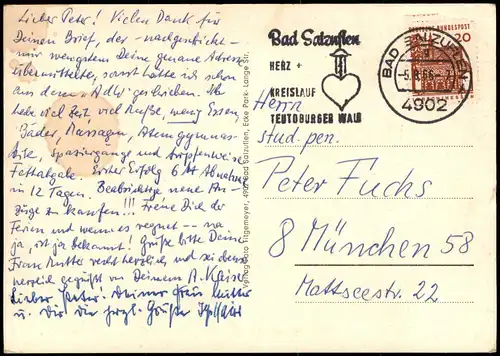 Lieber Peter! Vielen Dank für
Deinen Brief, der - nachgeschickt -
mir wenigstens Deine genaue Adresse
übermittelte, sonst hätte ich schon
aus dem geschrieben. Ich
habe viel Zeit, viel Muße, wenig Essen,
Bäder, Massagen, Atemgymnas-
tik, Spaziergänge und tropfenweise
Fettabgabe. Erster Erfolg 6 Abnahme
in 12 Tagen. Beabsichtige neue An-
züge zu kaufen!!! Freue Dich der
Ferien und wenn es regnet - na
ja, ist ja bekannt! Grüße bitte Deine
Frau Mutter recht herzlich und sei denn
herzlich gegrüßt von Deinem
Lieber Peter! Deiner Frau Mutter
u. Dir die herzl. Grüße
Verlag Foto Tilgemeyer, 4902 Bad Salzuflen, Ecke Park- Lange Str.
Bad Salzuflen
HERZ +
KREISLAUF
TEUTOBURGER WALD
BAD SALZUFLEN
-5.8.66
4902
BUNDESPOST
20
Herrn
stud. pen.
Peter Fuchs
8 München 58
Mattseestr. 22